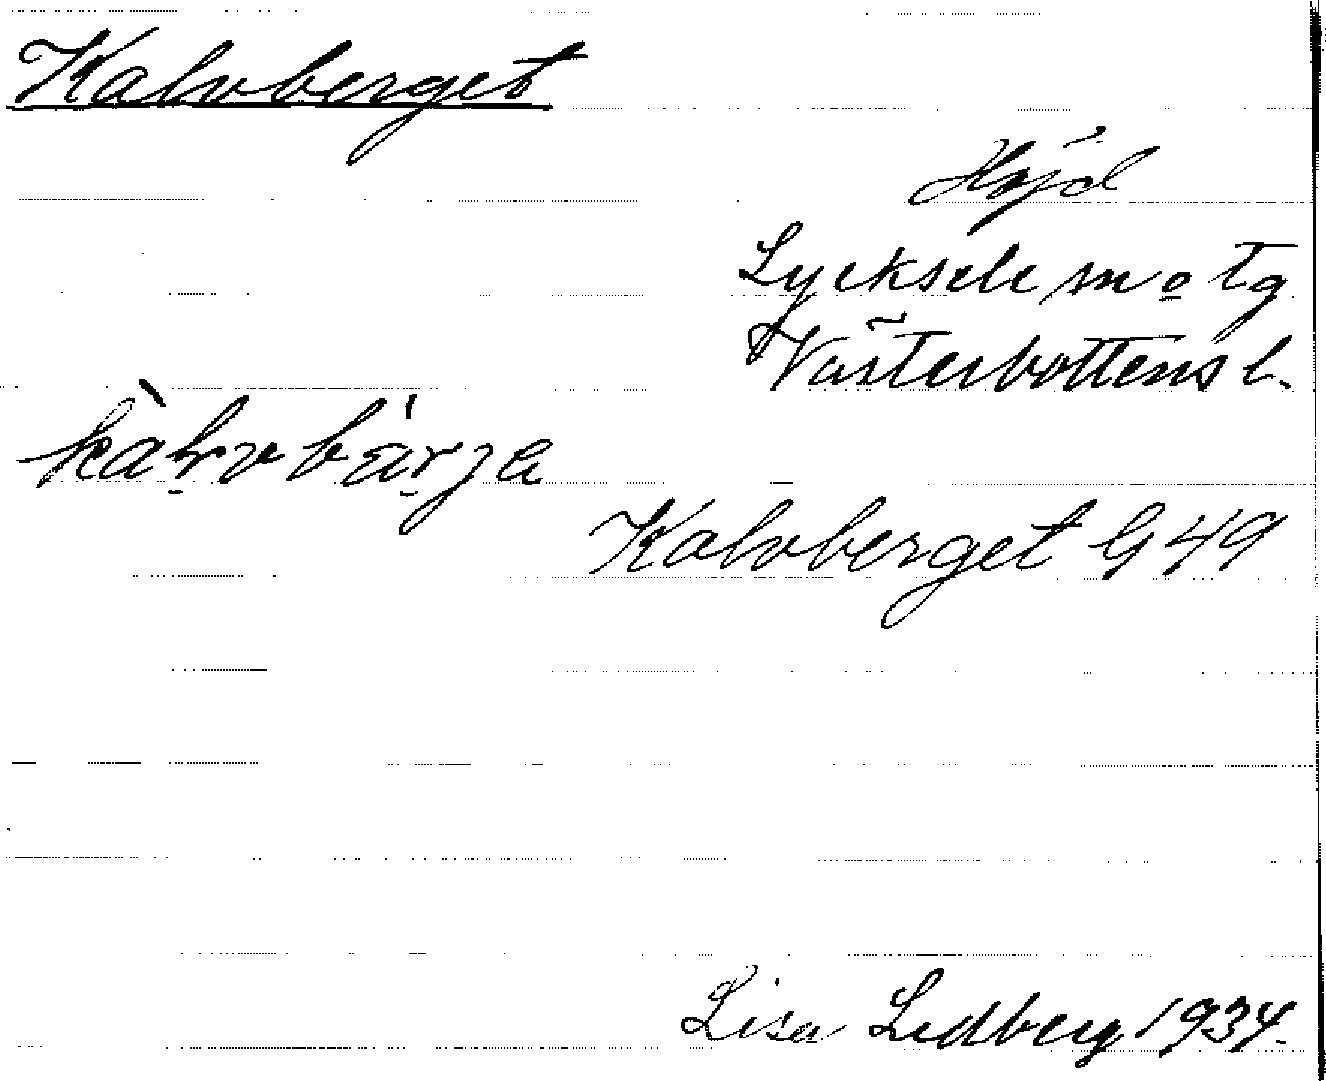 Kalvberget
Höjd
Lycksele m o tg
Västerbottens l.
kàḷvbä́ṛja
Kalvberget G 49
Lisa Lidberg 1934.